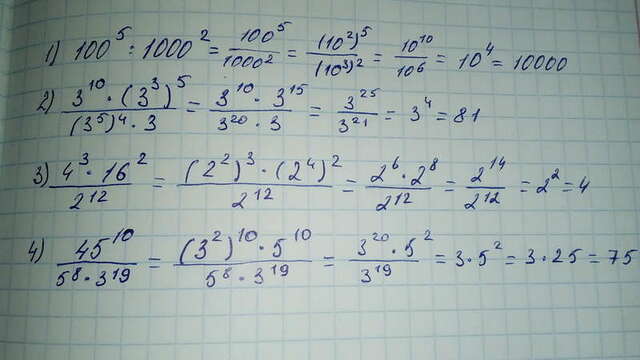 1) 100⁵ : 1000² = 100⁵/1000² = (10²)⁵/(10³)² = 10¹⁰/10⁶ = 10⁴ = 10000
2) (3¹⁰·(3³)⁵)/((3⁵)⁴·3) = (3¹⁰·3¹⁵)/(3²⁰·3) = 3²⁵/3²¹ = 3⁴ = 81
3) (4³·16²)/2¹² = ((2²)³·(2⁴)²)/2¹² = (2⁶·2⁸)/2¹² = 2¹⁴/2¹² = 2² = 4
4) 45¹⁰/(5⁸·3¹⁹) = ((3²)¹⁰·5¹⁰)/(5⁸·3¹⁹) = (3²⁰·5²)/3¹⁹ = 3·5² = 3·25 = 75